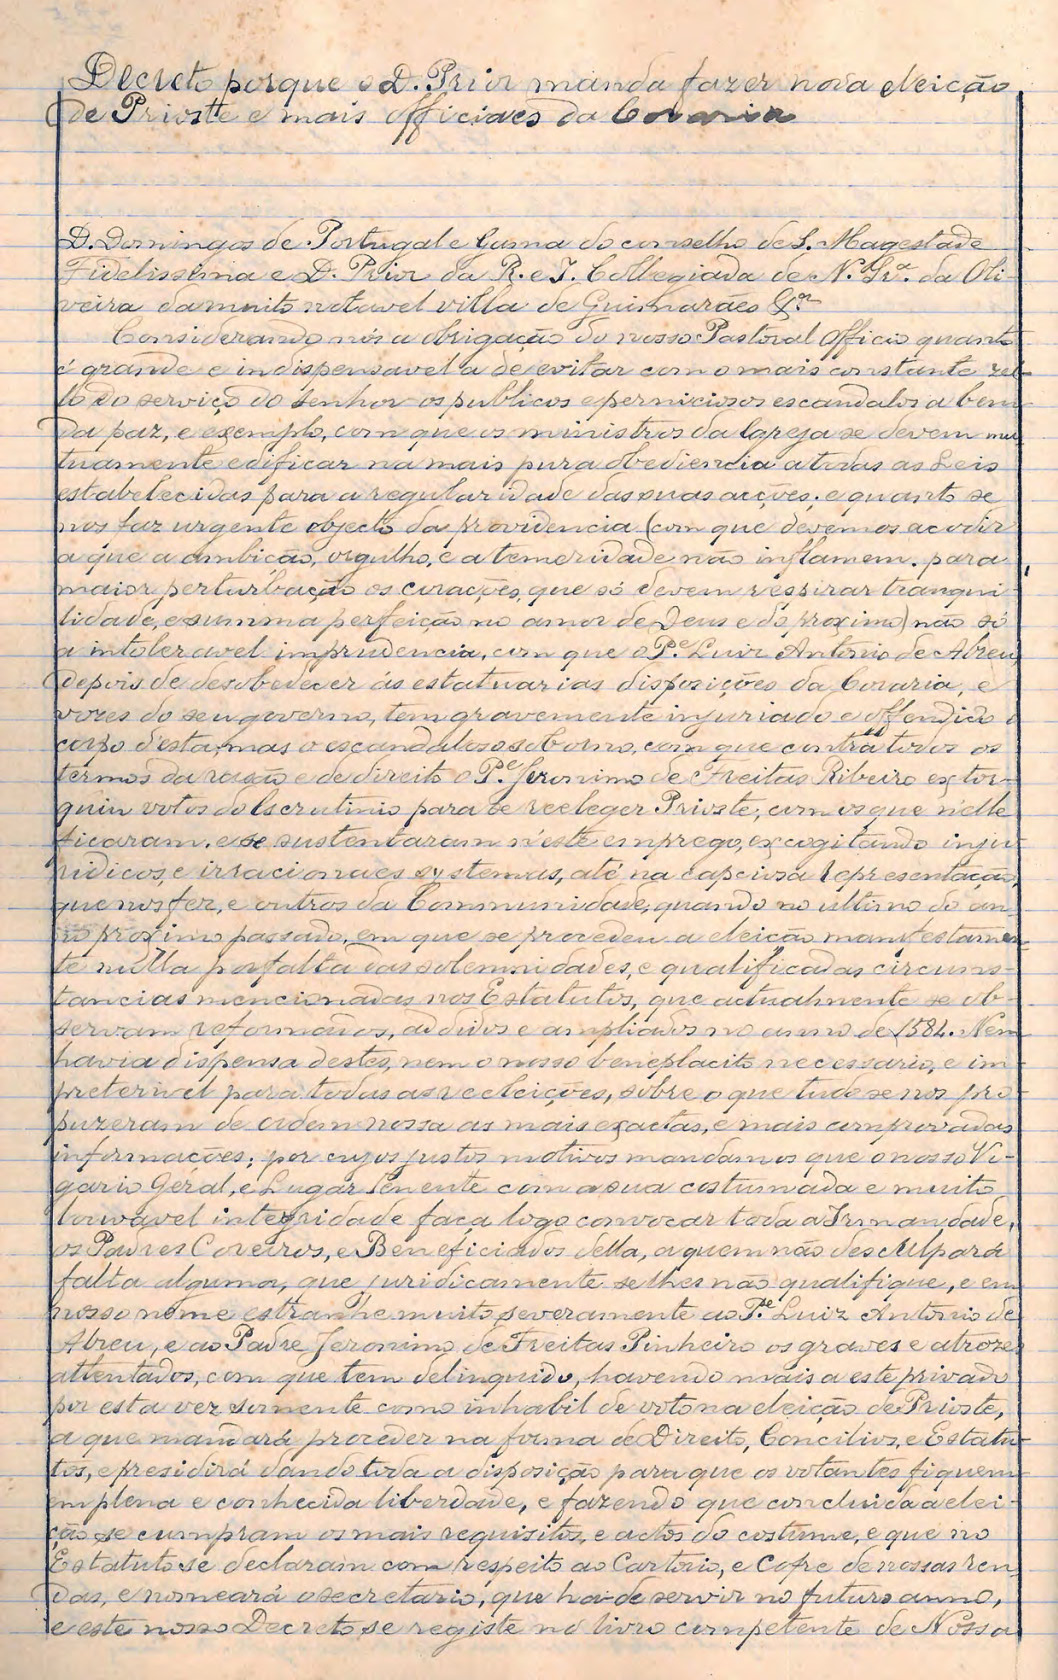 Decreto porque o D. Prior manda fazer nova eleição
de Prioste e mais officiaes da Coraria
D. Domingos de Portugal e Gama do conselho de S. Magestade
Fidelissima e D. Prior da R. e I. Collegiada de N. Srª. da Oli-
veira da muito notavel villa de Guimarães &ª
Considerando nós a obrigação do nosso Pastoral Officio quanto
é grande e indispensavel a de evitar com o mais constante ze-
lo do serviço do Senhor os publicos e perniciosos escandalos a bem
da paz, e exemplo, com que os ministros da Igreja se devem mu
tuamente edificar na mais pura obediencia a todas as Leis
estabelecidas para a regularidade das suas acções; e quanto se
nos faz urgente objecto da providencia (com que devemos acodir
a que a ambição, orgulho, e a temeridade não inflamem para
maior perturbação os corações, que só devem respirar tranqui
lidade, e summa perfeição no amor de Deus e do proximo) não só
a intoleravel imprudencia, com que o Pe. Luiz Antonio de Abreu
depois de desobedecer ás estatuarias disposições da Coraria, e
vozes do seu governo, tem gravemente injuriado e offendido o
corpo d'esta, mas o escandaloso soborno, com que contra todos os
termos da rasão e de direito o Pe. Jeronimo de Freitas Ribeiro extor-
quiu votos do Escrutinio para se reeleger Prioste, com os que n'elle
ficaram, e se sustentaram n'este emprego, excogitando inju-
ridicos, e irracionaes systemas, até na capciosa representação,
que nos fez, e outros da Communidade, quando no ultimo do an-
no proximo passado, em que se procedeu a eleição manifestamen-
te nulla por falta das solemnidades, e qualificadas circums-
tancias mencionadas nos Estatutos, que actualmente se ob-
servam reformados, addidos e ampliados no anno de 1584. Nem
havia dispensa destes, nem o nosso beneplacito necessario, e im
preterivel para todas as reeleições, sobre o que tudo se nos pro
puzeram de ordem nossa as mais exactas, e mais comprovadas
informações; por cujos justos motivos mandamos que o nosso Vi-
gario Geral, e Lugar Tenente com a sua costumada e muito
louvavel integridade faça logo convocar toda a Irmandade,
os Padres Coreiros, e Beneficiados della, a quem não desculpará
falta alguma, que juridicamente se lhes não qualifique, e em
nosso nome estranhe muito severamente ao Pe. Luiz Antonio de
Abreu, e ao Padre Jeronimo de Freitas Pinheiro os graves e atrozes
attentados, com que tem delinquido, havendo mais a este privado
por esta vez somente como inhabil de voto na eleição de Prioste,
a que mandará proceder na forma de Direito, Concilios, e Estatu-
tos, e presidirá dando toda a disposição para que os votantes fiquem
em plena e conhecida liberdade, e fazendo que concluida a elei-
ção se cumpram os mais requisitos, e actos do costume, e que no
Estatuto se declaram com respeito ao Cartorio, e Cofre de nossas ren
das, e nomeará o secretario, que ha-de servir no futuro anno,
e este nosso Decreto se registe no livro competente de Nossa